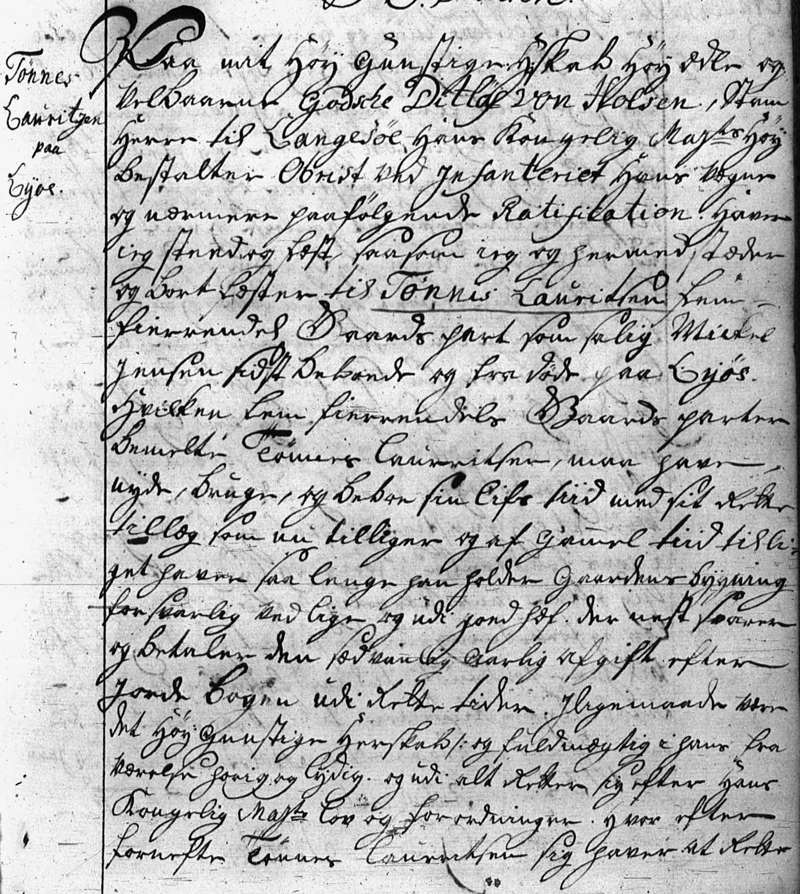 Tønnes
Lauritzen
paa
Eyøe.
Paa mit Høy gunstige Hskab Høy ædle og
Velbaarne Godsche Ditlof von Holsen, Stam
Herre til Langesöe, Hans Kongelig Mayts Høy
bestalter Obrist ved Infanteriet Hans vegne
og nærmere paafølgende Ratification. Haver
ieg sted og fæst, saasom ieg og hermed, stæder
og bort fæster til Tønnis Lauritsen fem
fierrendel Gaards part som salig Mickel
Jensen sidst beboede og fra døde paa Eyöe.
Hvilken fem fierrendels Gaards parter
bemelte Tønnes Lauritsen, maa have,
nyde, bruge, og beboe sin lifs tiid med sit Rette
tillæg som nu tilligger og af gammel tiid tilli-
get haver saa lenge han holder Gaardens bygning
forsvarlig ved lige og udi goed hæf. der nest svarer
og betaler den sædvanlig Aarlig Afgift efter
Jorde bogen udi Rette tider. Iligemaade være
det Høy gunstige Herskab /: og fuldmægtig i hans fra
værelse hørig og lydig. og udi alt Retter sig efter Hans
Kongelig Mayts lov og forordninger. Hvor efter
fornefte Tønnes Lauritsen sig haver at Rette